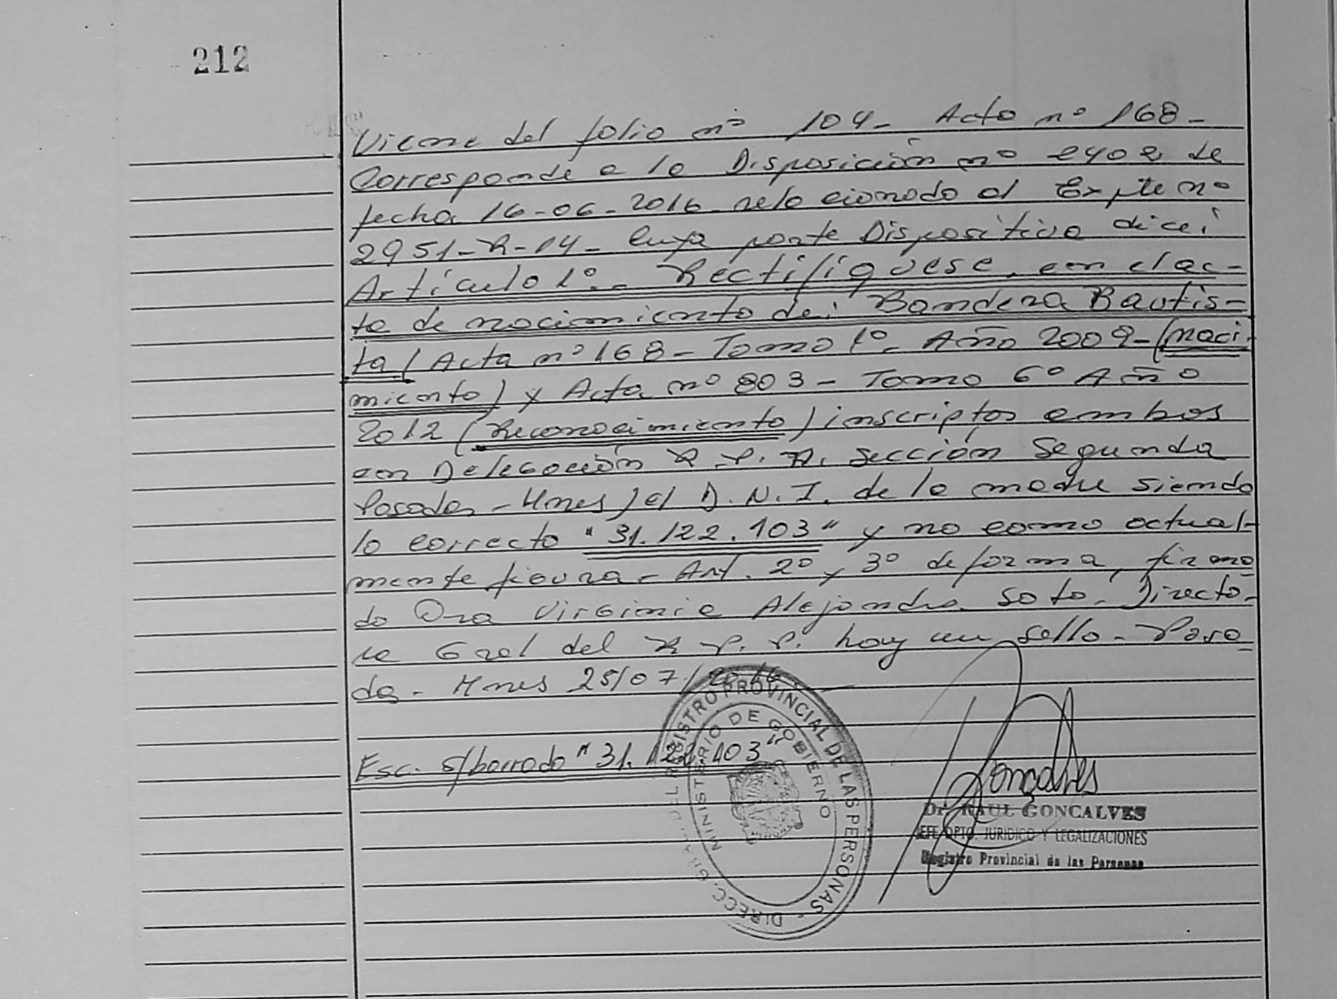 212
Viene del folio nº 104- Acta nº 168-
Corresponde a la Disposición nº 2402 de
fecha 16-06-2016 relacionado al Expte nº
2951-R-14- Cuya parte Dispositiva dice:
Artículo 1º.- Rectifíquese en el ac-
ta de nacimiento de: Bandera Bautis-
ta (Acta nº 168- Tomo 1º- Año 2009-(naci-
miento) y Acta nº 803- Tomo 6º Año
2012 (Reconocimiento) inscriptos ambos
en Delegación R.P.P. Sección Segunda
Posadas-Mnes) el D.N.I. de la madre siendo
lo correcto "31.122.103" y no como actual-
mente figura- Art. 2º y 3º de forma, firma
do Dra Virginia Alejandra Soto- Directo-
ra Gral del R.P.P. hay un sello- Posa
das- Mnes 25/07/2016
Esc. s/borrado "31.122.103"
DIRECC. GRAL. DEL REGISTRO PROVINCIAL DE LAS PERSONAS -
MINISTERIO DE GOBIERNO
Goncalves
Dr. RAUL GONCALVES
JEFE DPTO. JURIDICO Y LEGALIZACIONES
Registro Provincial de las Personas